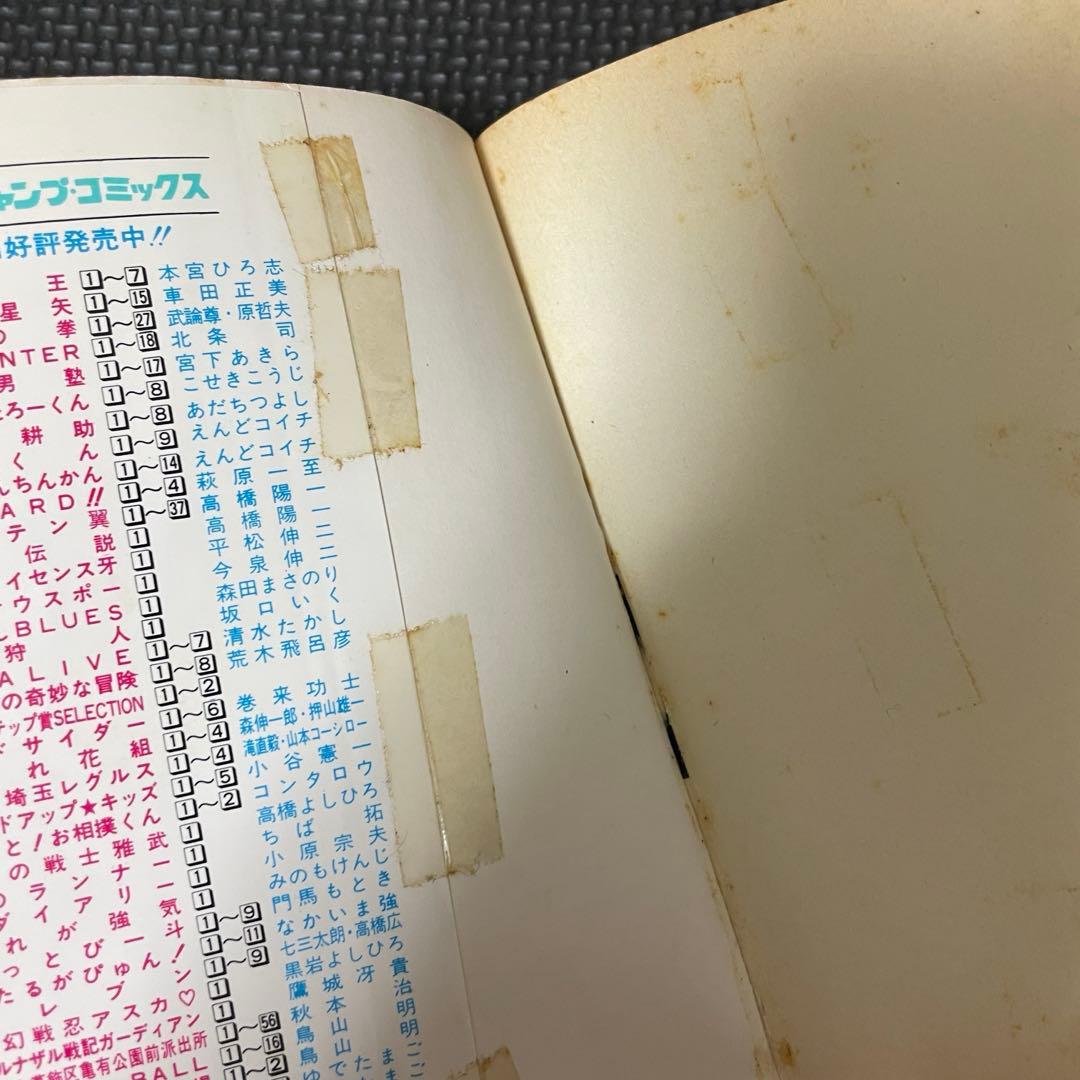 ャンプ・コミックス
好評発売中!!
王 1〜7 本宮ひろ志
星矢 1〜15 車田正美
の拳 1〜27 武論尊・原哲夫
NTER 1〜18 北条司
男塾 1〜17 宮下あきら
ろーくん 1〜8 こせきこうじ
耕助 1〜8 あだちつよし
くん 1〜9 えんどコイチ
んちんかん 1〜14 えんどコイチ
ARD!! 1〜4 萩原一至
テン翼 1〜37 高橋陽一
伝説 1 高橋陽一
イセンス牙 1 平松伸二
ウスポー 1 今泉伸二
しBLUES 1 森田まさのり
狩人 1 坂口いく
ALIVE 1〜7 清水たかし
の奇妙な冒険 1〜8 荒木飛呂彦
ップ賞SELECTION 1〜2
ドサイダー 1〜6 巻来功士
れ花組 1〜4 森伸一郎・押山雄一
埼玉レグルス 1〜4 滝直毅・山本コーシロー
ドアップ★キッズ 1〜5 小谷憲一
と!お相撲くん 1〜2 コンタロウ
の戦士雅武 1 高橋よしひろ
のランナー 1 ちば拓
ダイアリー 1 小原宗夫
れが強気 1 みのもけんじ
っとび一斗 1〜9 門馬もとき
たるがぴゅん! 1〜11 なかいま強
レブン 1〜9 七三太朗・高橋広
幻戦忍アスカ♡ 1 黒岩よしひろ
ルナザル戦記ガーディアン 1 鷹城冴貴
葛飾区亀有公園前派出所 1〜56 秋本治
BALL 1〜16 鳥山明
1〜2 鳥山明
ゆでたまご